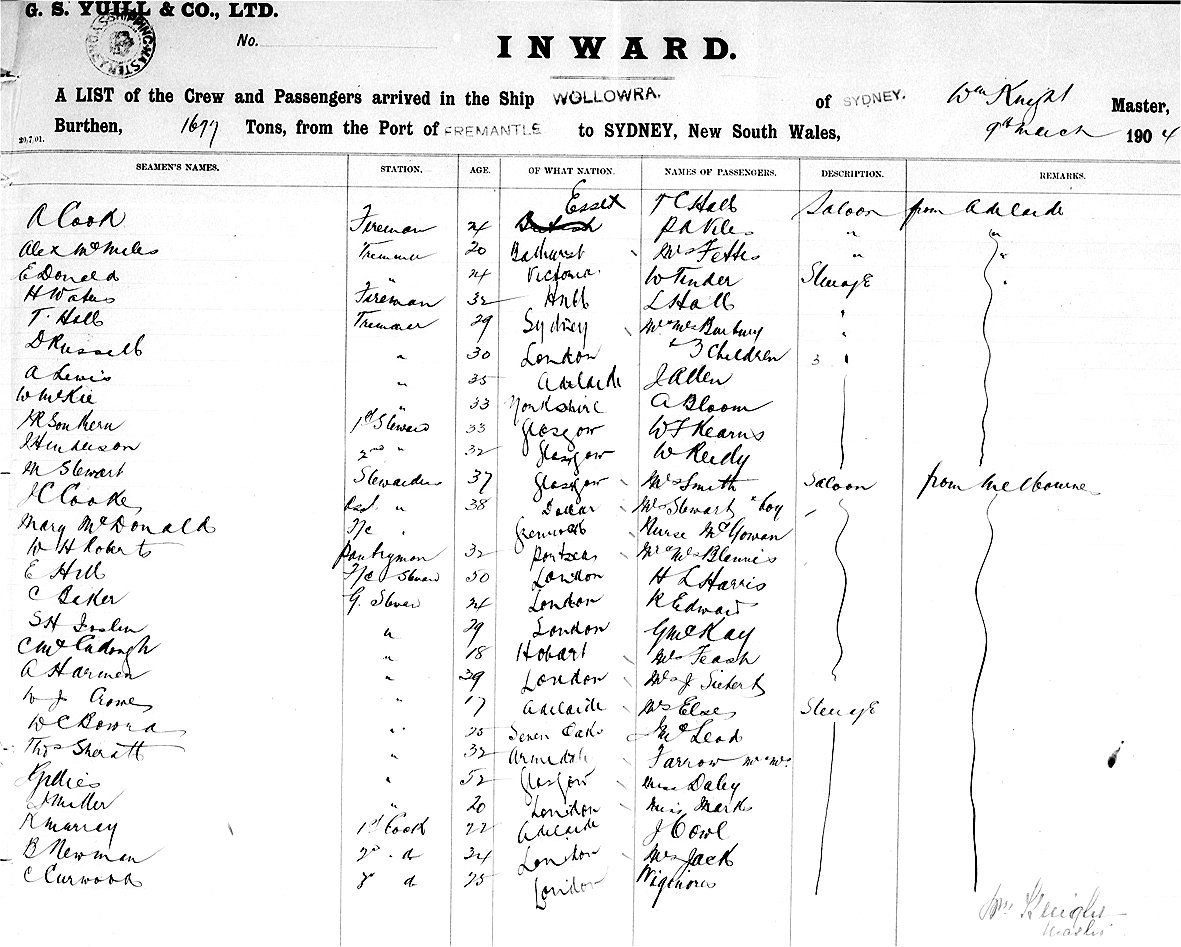 G. S. YUILL & CO., LTD.
SHIPPING MASTER
No.
INWARD.
A LIST of the Crew and Passengers arrived in the Ship WOLLOWRA. of SYDNEY. Wm Knight Master,
Burthen, 1677 Tons, from the Port of FREMANTLE to SYDNEY, New South Wales, 9th March 1904
20.7.01.
SEAMEN'S NAMES. STATION. AGE. OF WHAT NATION. NAMES OF PASSENGERS. DESCRIPTION. REMARKS.
A Cook Fireman 24 Essex T C Hall Saloon from Adelaide
Alex McMiles Tremmer 20 Bathurst Mrs Fettes " "
E Donald " 24 Victoria W Tinder Steerage "
H Waters Fireman 32 Hull L Hall
T. Hall Tremmer 29 Sydney Mr & Mrs Burbury "
D Russell " 30 London & 3 Children 3 "
A Lewis " 25 Adelaide J Allen
W McKie " 33 Yorkshire A Bloom
1st Steward 33 Glasgow W F Kearns
J Henderson 2nd " 32 Glasgow W Reidy
M Stewart Stewardess 37 Glasgow Mrs Smith Saloon from Melbourne
J C Cooke " 38 Mrs Stewart & boy
Mary McDonald F/c " Greenwich Nurse McGowan
W H Roberts Pantryman 32 Portsea Mr & Mrs
E Hill F/c Steward 50 London H L Harris
C Baker G. Stewar 24 London R Edward
S H Joslin " 29 London G McKay
" 18 Hobart Mrs
A Harmen " 39 London Mrs J Siebert
W J Crowe " 17 Adelaide Mrs Elses Steerage
W C Bowra " 25 Seven Oaks McLeod
Thos Sheratt " 32 Armidale Farrow Mr & Mrs
Gillies " 52 Glasgow Miss Daley
J Miller " 20 London Miss Marks
K Murray 1st Cook 22 Adelaide J Cowl
B Newman 2nd d 34 London Mrs Jack
C Curwood 3 d 25 London
Wm Knight
Master